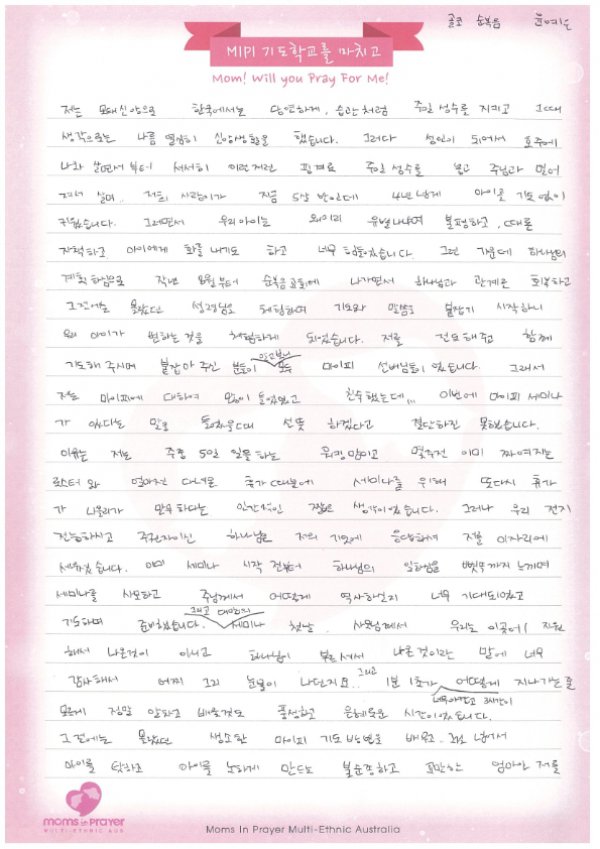 골코 순복음 윤예은
MIPI 기도학교를 마치고
Mom! Will you Pray For Me!
저는 모태신앙으로 한국에서는 당연하게, 습관처럼 주일 성수를 지키고 그때
생각으로는 나름 열심히 신앙생활을 했습니다. 그러다 성인이 되어서 호주에
나와 살면서부터 서서히 이런저런 핑계로 주일 성수를 않고 주님과 멀어
지며 살며, 저희 사랑이가 지금 5살 반인데 4년 넘게 아이를 기도 없이
키웠습니다. 그러면서 우리아이는 왜이리 유별나냐며 불평하고, 때론
자책하고 아이에게 화를 내기도 하고 너무 힘들었습니다. 그런 가운데 하나님의
계획하심으로 작년 8월부터 순복음교회에 나가면서 하나님과 관계를 회복하고
그전에는 몰랐던 성령님을 체험하며 기도와 말씀을 붙잡기 시작하니
우리 아이가 변하는 것을 체험하게 되었습니다. 저를 전도해주고 함께
기도해 주시며 붙잡아 주신 분들이 알고보니 모두 마이피 선배님들이 었습니다. 그래서
저는 마이피에 대하여 많이 들었었고 친숙했는데... 이번에 마이피 세미나
가 있다는 말을 들었을때 선뜻 하겠다고 결단하진 못했습니다.
이유는 저는 주중 5일 일을 하는 워킹 맘이고 몇주전 이미 짜여지는
로스터와 얼마전 다녀온 휴가 때문에 세미나를 위해 또다시 휴가
가 나올리가 만무하다는 인간적인 짧은 생각이었습니다. 그러나 우리 전지
전능하시고 주관자이신 하나님은 저의 기도에 응답하셔 저를 이자리에
세우셨습니다. 이미 세미나 시작 전부터 하나님의 일하심을 뼛속까지 느끼며
세미나를 사모하고 주님께서 어떻게 역사하실지 너무 기대되었고
기도하며 준비했습니다. 그리고 대망의 세미나 첫날, 사모님께서 우리는 이곳에 자원
해서 나온것이 아니고 하나님이 부르셔서 나온 것이란 말에 너무
감사해서 어찌 그리 눈물이 나던지요.. 그리고 1분 1초가 어떻게 지나가는줄
모르게 정말 알차고 배울것도 풍성하고 은혜로운 너무아깝고 3시간이 시간이었습니다.
그전에는 몰랐던 생소한 마이피 기도 방법을 배우고, 그간 넘어서
아이를 탓하고 아이를 노하게 만드는 불순종하고 교만한 엄마인 저를
moms in PRayer
MULTI-ETHNIC AUS
Moms In Prayer Multi-Ethnic Australia